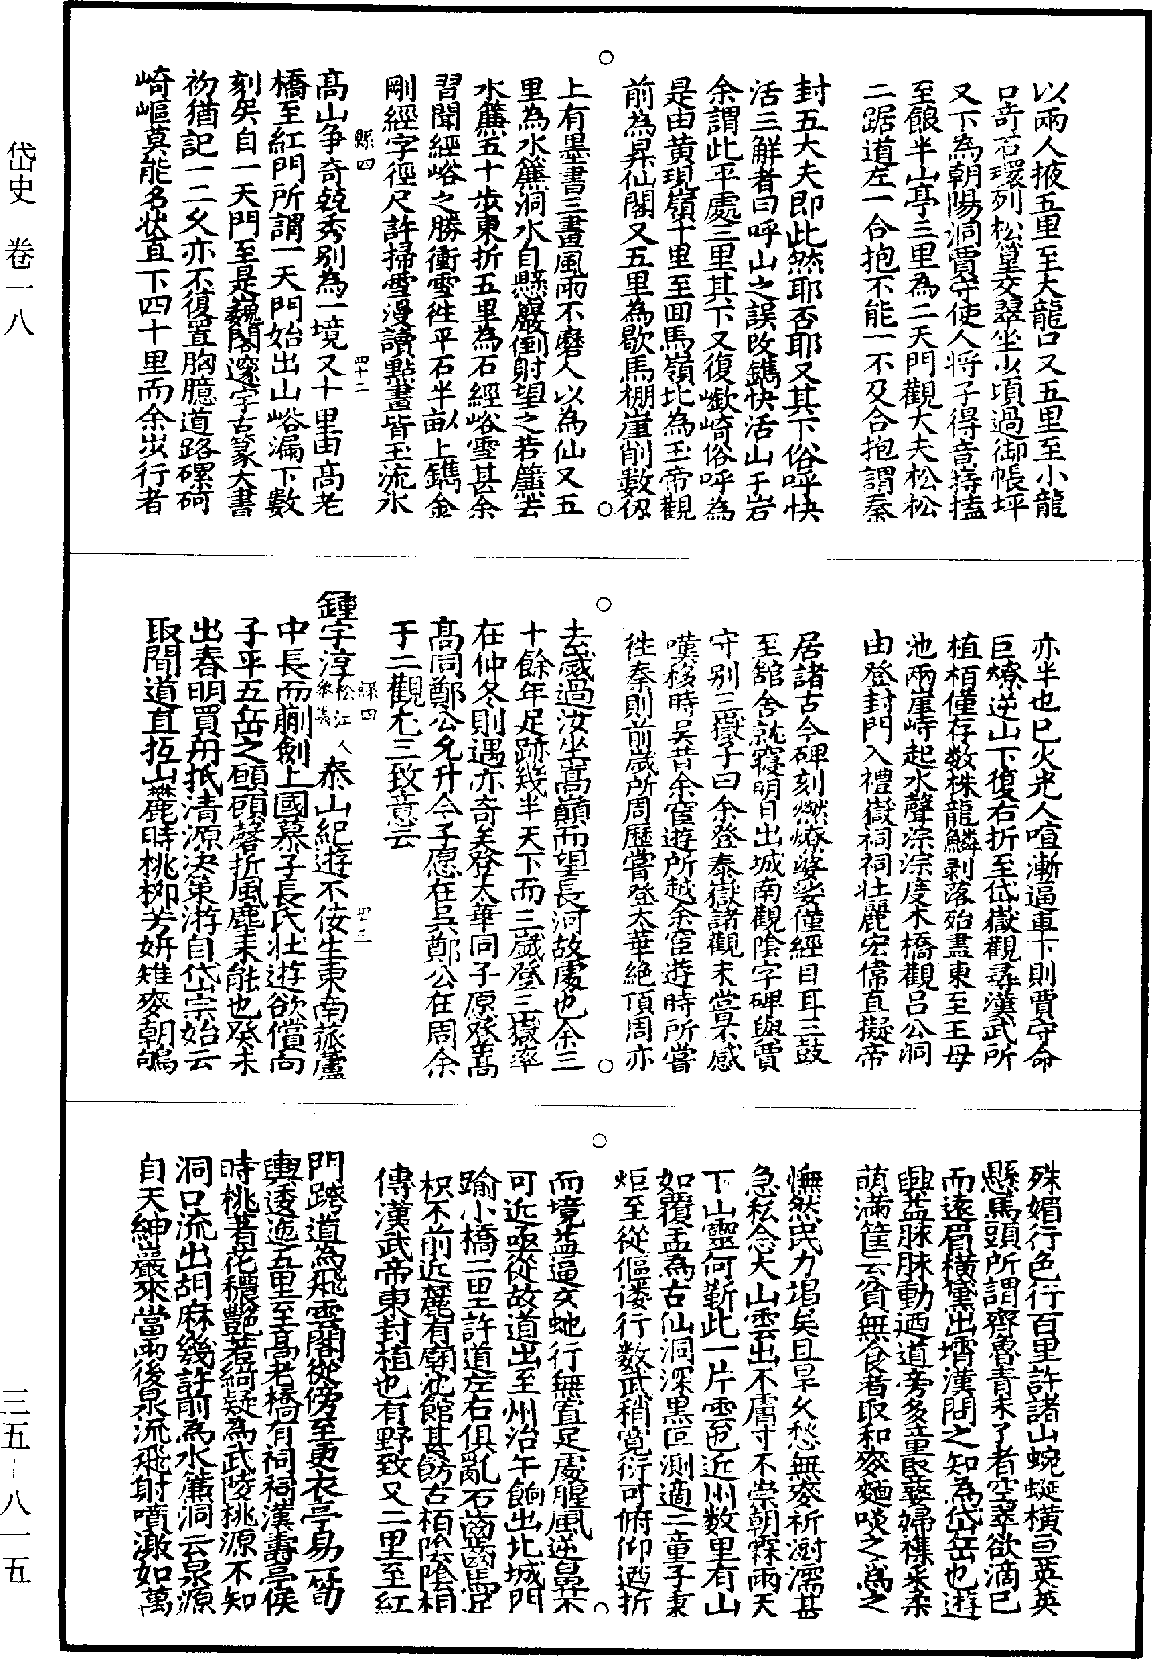 岱史 卷一八
以兩人掖五里至大龍口又五里至小龍
口奇石環列松篁交翠坐少頃過御帳坪
又下為朝陽洞賈守使人將子得音持榼
至餉半山亭三里為二天門觀大夫松松
二踞道左一合抱不能一不及合抱謂秦
封五大夫即此然耶否耶又其下俗呼快
活三解者曰呼山之誤改鐫快活山于岩
余謂此平處三里其下又復嶔崎俗呼為
是由黃現嶺十里至回馬嶺北為玉帝觀
前為昇仙閣又五里為歇馬棚崖削數仞
上有墨書三畫風雨不磨人以為仙又五
里為水簾洞水自懸巖倒射望之若簾去
水簾五十步東折五里為石經峪雪甚余
習聞經峪之勝衝雪徃平石半畝以上鐫金
剛經字徑尺許掃雪漫讀點畫皆玉流水
縣四
四十二
高山爭奇競秀別為一境又十里由高老
橋至紅門所謂一天門始出山峪漏下數
刻矣自一天門至是巍閣邃宇古篆大書
初猶記一二久亦不復置胸臆道路磥砢
崎嶇莫能名状直下四十里而余出行者
亦半也已火光人喧漸逼車下則賈守命
巨燎逆山下復右折至岱嶽觀尋漢武所
植栢僅存数株龍鱗剥落殆盡東至王母
池兩崖峙起水聲淙淙度木橋觀吕公洞
由登封門入禮嶽祠祠壯麗宏偉直擬帝
居諸古今碑刻燃燎婆娑僅經目耳三鼓
至舘舍就寢明日出城南觀陰字碑與賈
守别三嶽子曰余登泰嶽諸觀未嘗不感
嘆移時吴昔余宦遊所越余宦遊時所嘗
徃秦則前歲所周歷嘗登太華絶頂周亦
去歲過汝坐嵩巓而望長河故處也余三
十餘年足跡幾半天下而三歲登三嶽率
在仲冬則遇亦奇矣登太華同子原登嵩
高同鄭公允升今子愿在吴鄭公在周余
于二觀尤三致意云
縣四
四十三
鍾宇淳松江人泰山紀遊不佞生東南瓠蘆
中長而蒯劍上國慕子長氏壮遊欲償尚
子平五岳之願顧磬折風塵未能也癸未
出春明買舟抵清源决策游自岱宗始云
取間道直抵山麓時桃柳芳妍雉麥朝鳴
殊媚行色行百里許諸山蜿蜒横亘英英
懸馬頭所謂齊魯青未了者空翠欲滴已
而遠眉横黛出霄漢問之知為岱岳也遊
興益脉脉動迺道旁多童叟妾婦襍采柔
萌滿筐云貧無食者取和麥麵啖之為之
憮然民力竭矣且旱久愁無麥祈澍濡甚
急私念大山雲出不膚寸不崇朝霖雨天
下山靈何靳此一片雲也近州数里有山
如覆盂為古仙洞深黑叵測適二童子束
炬至從傴僂行数武稍寬衍可俯仰迺折
而境益逼欠虵行無置足處腥風逆鼻不
可近亟從故道出至州治午餉出北城門
踰小橋二里許道左右俱亂石齒齒馬足
枳不前近麓有廟沲館甚飭古栢陰陰相
傳漢武帝東封植也有野致又二里至紅
門跨道為飛雲閣從傍至更衣亭易一笱
輿逶迤五里至高老橋有祠祠漢壽亭侯
時桃著花穠艷若綺疑為武陵桃源不知
洞口流出胡麻幾許前為水簾洞云泉源
自天紳巖來當雨後泉流飛射噴漱如萬
三五—八一五